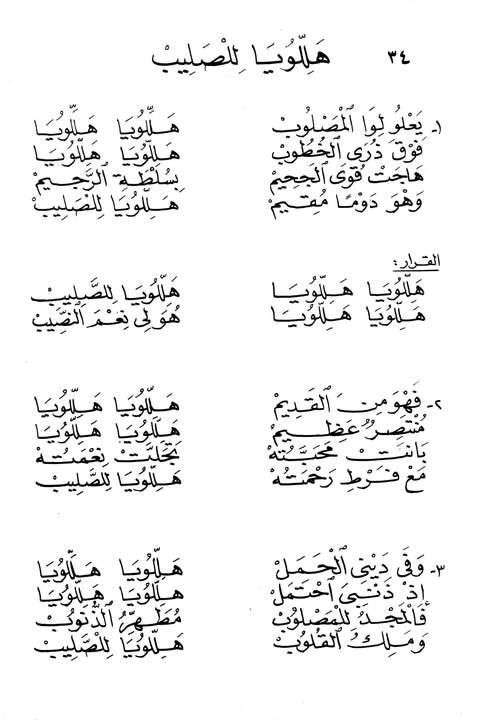 ٣٤ هَلِّلُويَا لِلْصَلِيبْ
١ـ يَعْلُو لِوَا ٱلْمَصْلُوبْ هَلِّلُويَا هَلِّلُويَا
فَوْقَ ذُرَى ٱلْخُطُوبْ هَلِّلُويَا هَلِّلُويَا
هَاجَتْ قُوَى ٱلجَحِيمْ بِسُلْطَةِ ٱلرَّجِيمْ
وَهْوَ دَوْمًا مُقِيمْ هَلِّلُويَا لِلْصَلِيبْ
القرار:
هَلِّلُويَا هَلِّلُويَا هَلِّلُويَا لِلصَّلِيبْ
هَلِّلُويَا هَلِّلُويَا هُوَ لِي نِعْمَ ٱلنَّصِيبْ
٢ـ فَهْوَ مِنَ ٱلقَدِيمْ هَلِّلُويَا هَلِّلُويَا
مُنْتَصِرٌ عَظِيمْ هَلِّلُويَا هَلِّلُويَا
بَانَتْ مَحَبَّتُهْ تَجَلَّتْ نِعْمَتُهْ
مَعْ فَرْطِ رَحْمَتُهْ هَلِّلُويَا لِلصَّلِيبْ
٣ـ وَفَى دَيْنِي ٱلْحَمَلْ هَلِّلُويَا هَلِّلُويَا
إِذْ ذَنْبِيَ ٱحْتَمَلْ هَلِّلُويَا هَلِّلُويَا
فَٱلْمَجْدُ لِلْمَصْلُوبْ مُطَهِّرُ ٱلذُّنُوبْ
وَمَلِكُ ٱلقُلُوبْ هَلِّلُويَا لِلْصَّلِيبْ